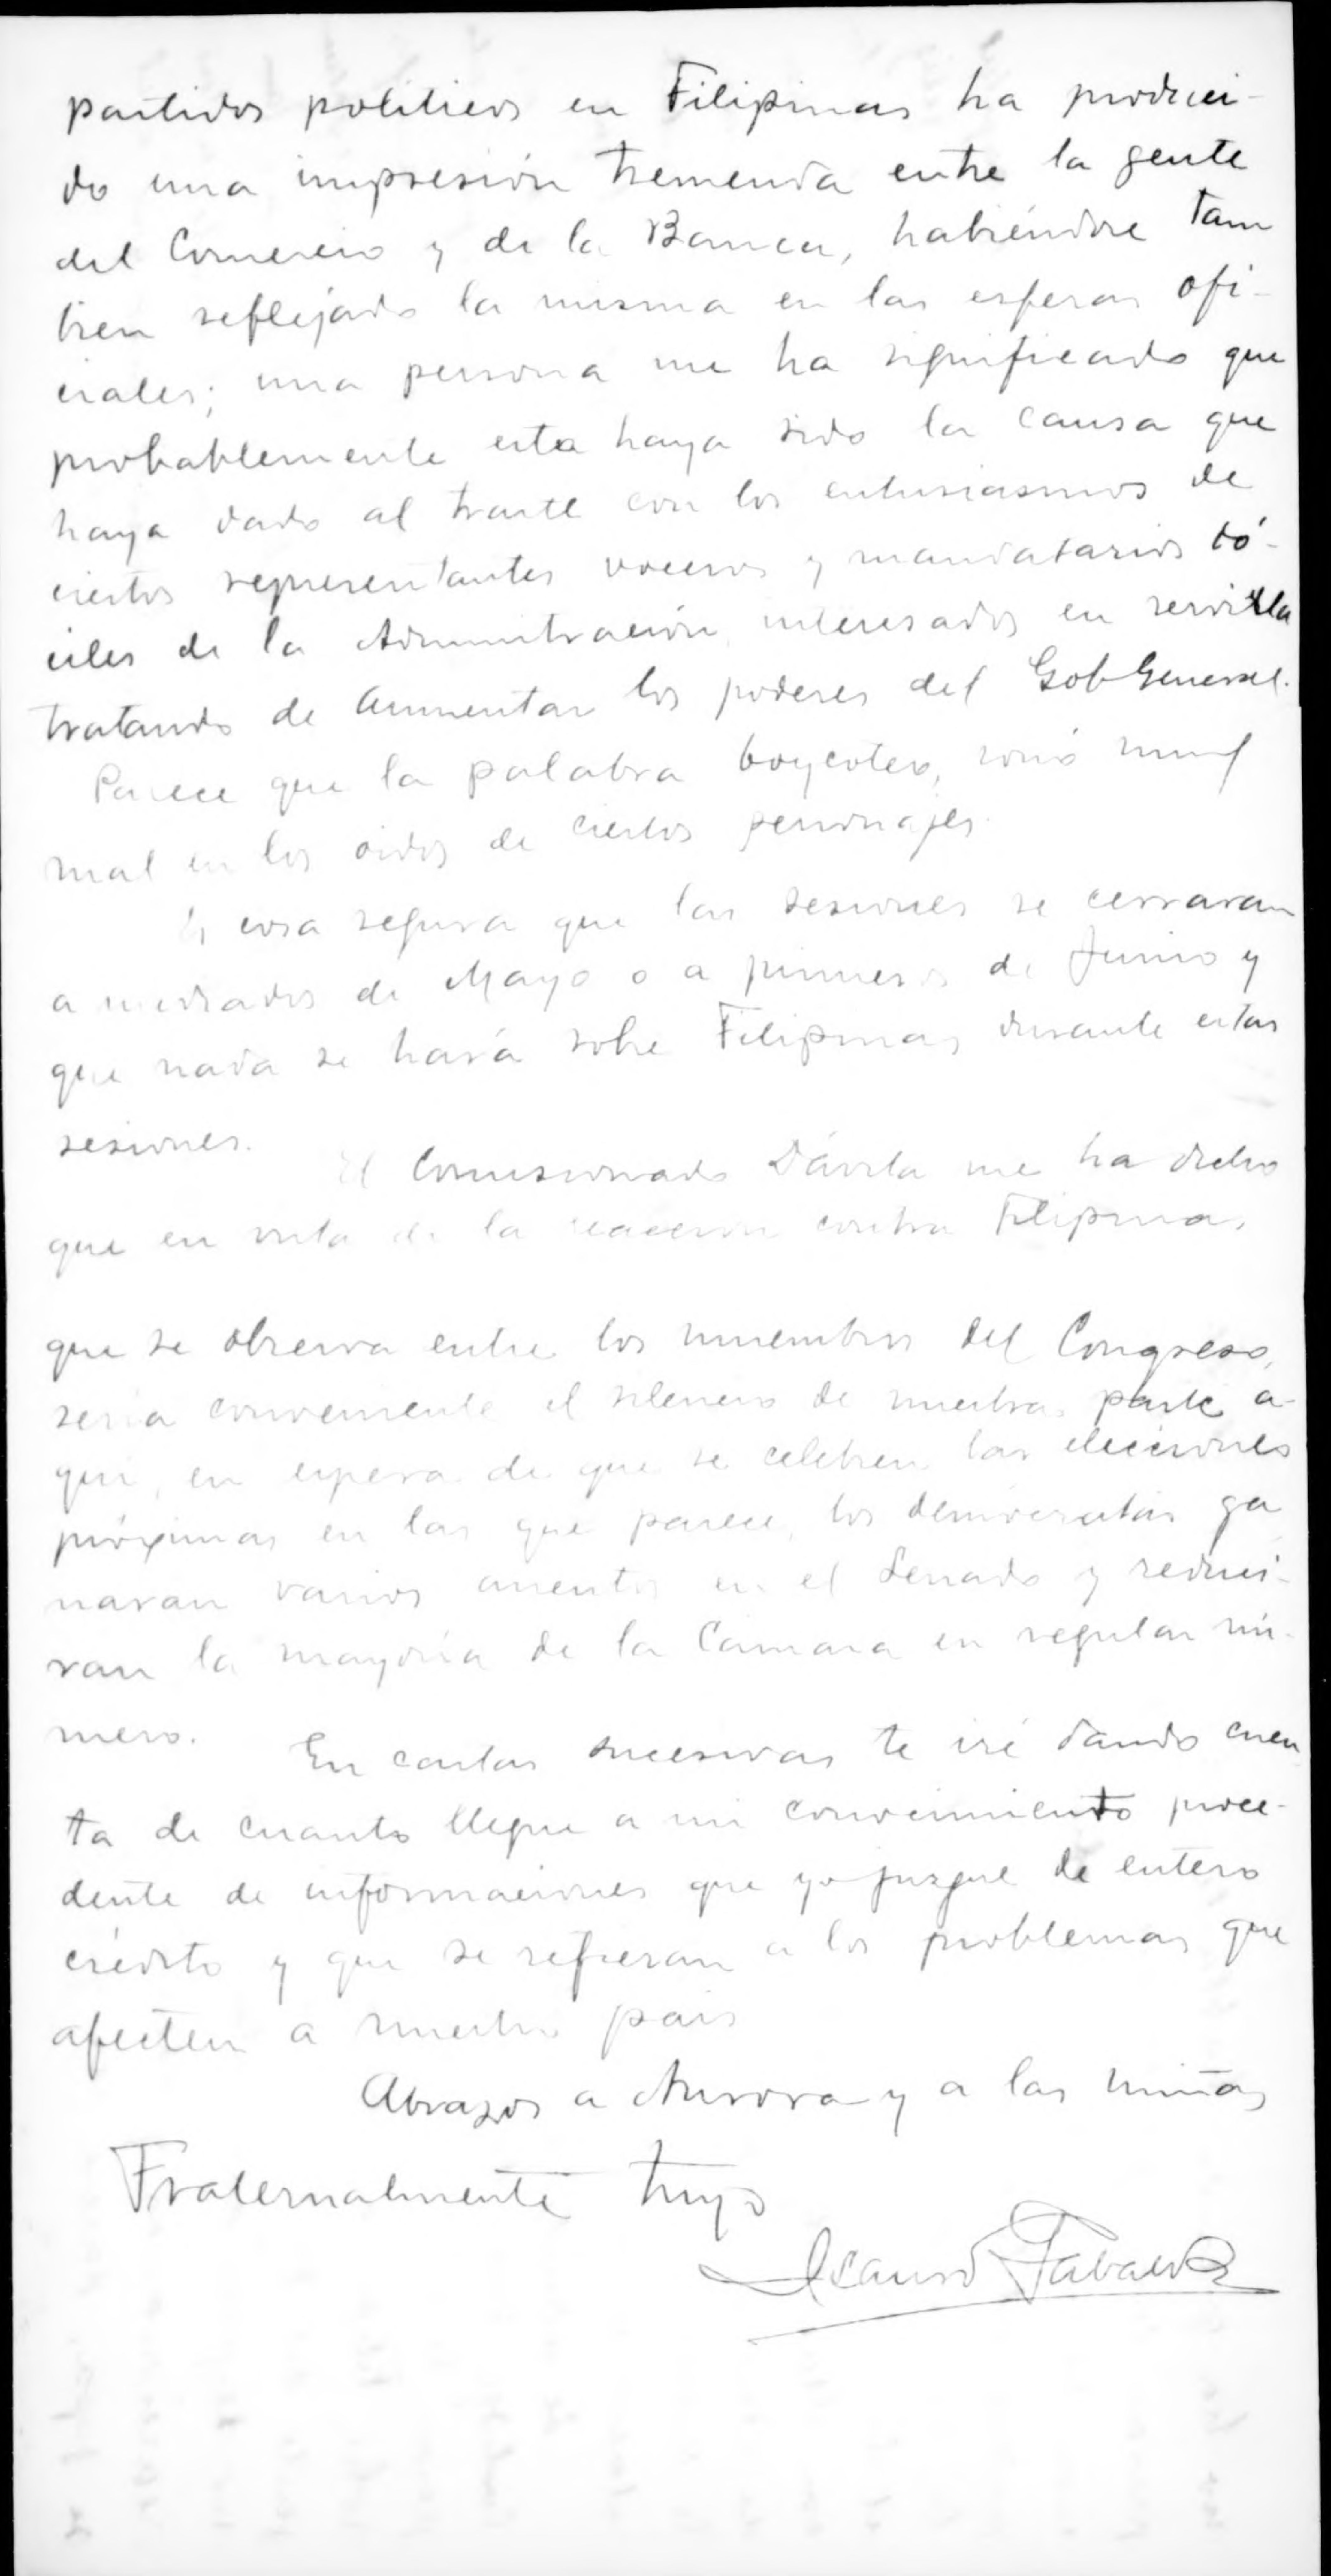 partidos politicos en Filipinas ha produci-
do una impresión tremenda entre la gente
del Comercio y de la Banca, habiéndose tam
bien reflejado la misma en las esferas ofi-
ciales; una persona me ha significado que
probablemente esta haya sido la causa que
haya dado al traste con los entusiasmos de
ciertos representantes voceros y mandatarios dó-
ciles de la Administración, interesados en servirla
tratando de aumentar los poderes del Gob General.
Parece que la palabra boycoteo, sonó muy
mal en los oidos de ciertos personajes.
Es cosa segura que las sesiones se cerraran
a mediados de Mayo o a primeros de Junio y
que nada se hará sobre Filipinas durante estas
sesiones.
El Comisionado Dávila me ha dicho
que en vista de la reaccion contra Filipinas
que se observa entre los miembros del Congreso,
seria conveniente el silencio de nuestra parte a-
qui, en espera de que se celebren las elecciones
próximas en las que parece, los demócratas ga
naran varios asientos en el Senado y reduci-
ran la mayoría de la Camara en regular nú-
mero.
En cartas sucesivas te iré dando cuen
ta de cuanto llegue a mi conocimiento proce-
dente de informaciones que yo juzgue de entero
crédito y que se refieran a los problemas que
afecten a nuestro pais
Abrazos a Aurora y a las niñas
Fraternalmente tuyo
Isauro Gabaldon